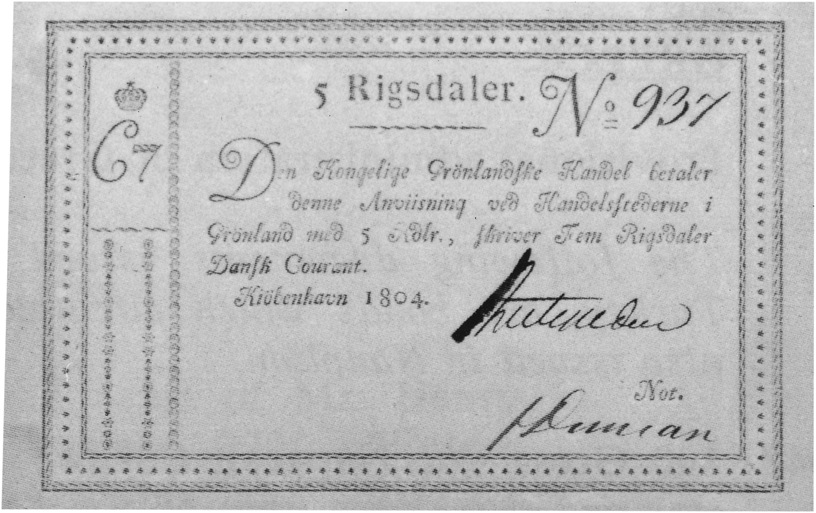 5 Rigsdaler. No 937
C7
Den Kongelige Grönlandske Handel betaler
denne Anviisning ved Handelsstederne i
Grönland med 5 Rdlr., skriver Fem Rigsdaler
Dansk Courant.
Kiöbenhavn 1804.
Not.